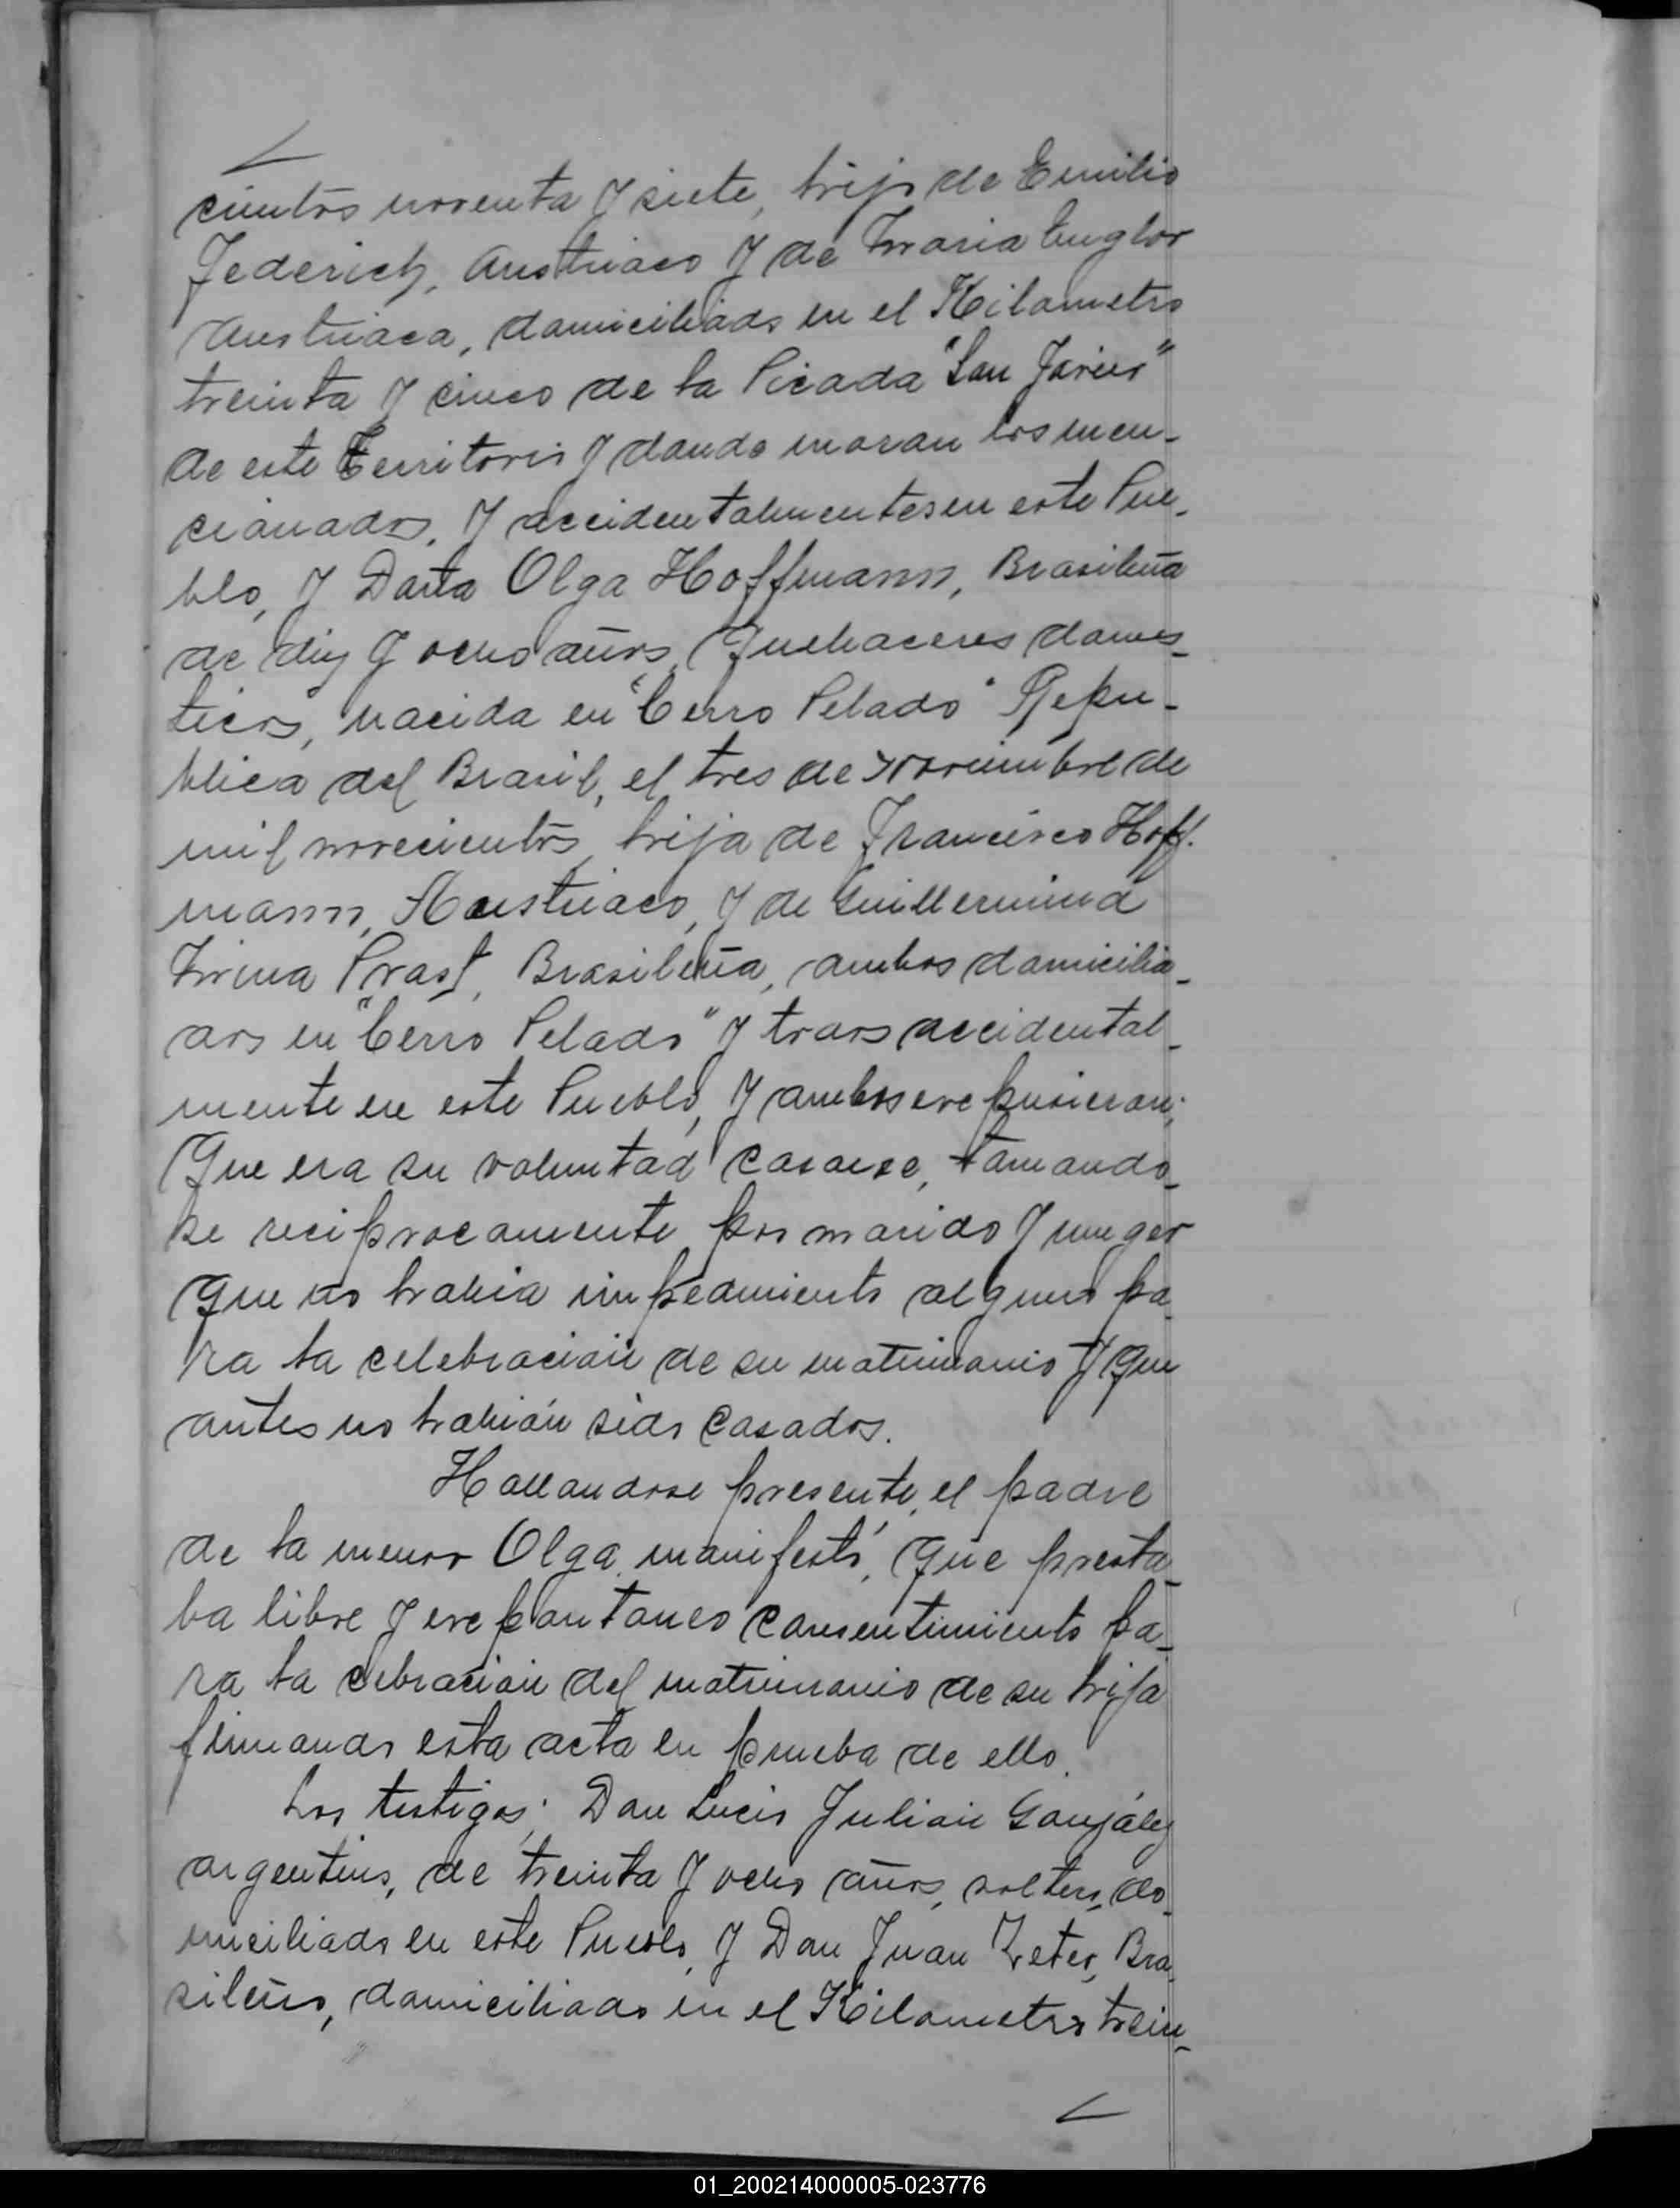 cientos noventa y siete, hijo de Emilio
Federich, Austriaco y de Maria Englor
Austriaca, domiciliado en el Kilometro
treinta y cinco de la Picada "San Javier"
de este Territorio y donde moran los men-
cionados, y accidentalmente en este Pue-
blo, y Doña Olga Hoffmann, Brasileña
de diez y ocho años, Quehaceres domes-
ticos, nacida en "Cerro Pelado" Repu-
blica del Brasil, el tres de Noviembre de
mil novecientos, hija de Francisco Hoff-
mann, Austriaco, y de Guillermina
Prast, Brasileña, ambos domicilia-
dos en "Cerro Pelado" y accidental-
mente en este Pueblo, y ambos expusieron;
Que era su voluntad casarse, tomando-
se reciprocamente por marido y muger
que no habia impedimento alguno pa-
ra la celebración de su matrimonio y que
antes no habián sido casados.
Hallandose presente, el padre
de la menor Olga, manifestó, que presta-
ba libre y expontaneo consentimiento pa-
ra la cebración del matrimonio de su hija
firmando esta acta en prueba de ello.
Los testigos; Don Lucio Julián González
argentino, de treinta y ocho años, soltero, do-
miciliado en este Pueblo, y Don Juan Bra-
sileño, domiciliado en el Kilometro trein-
01_200214000005-023776